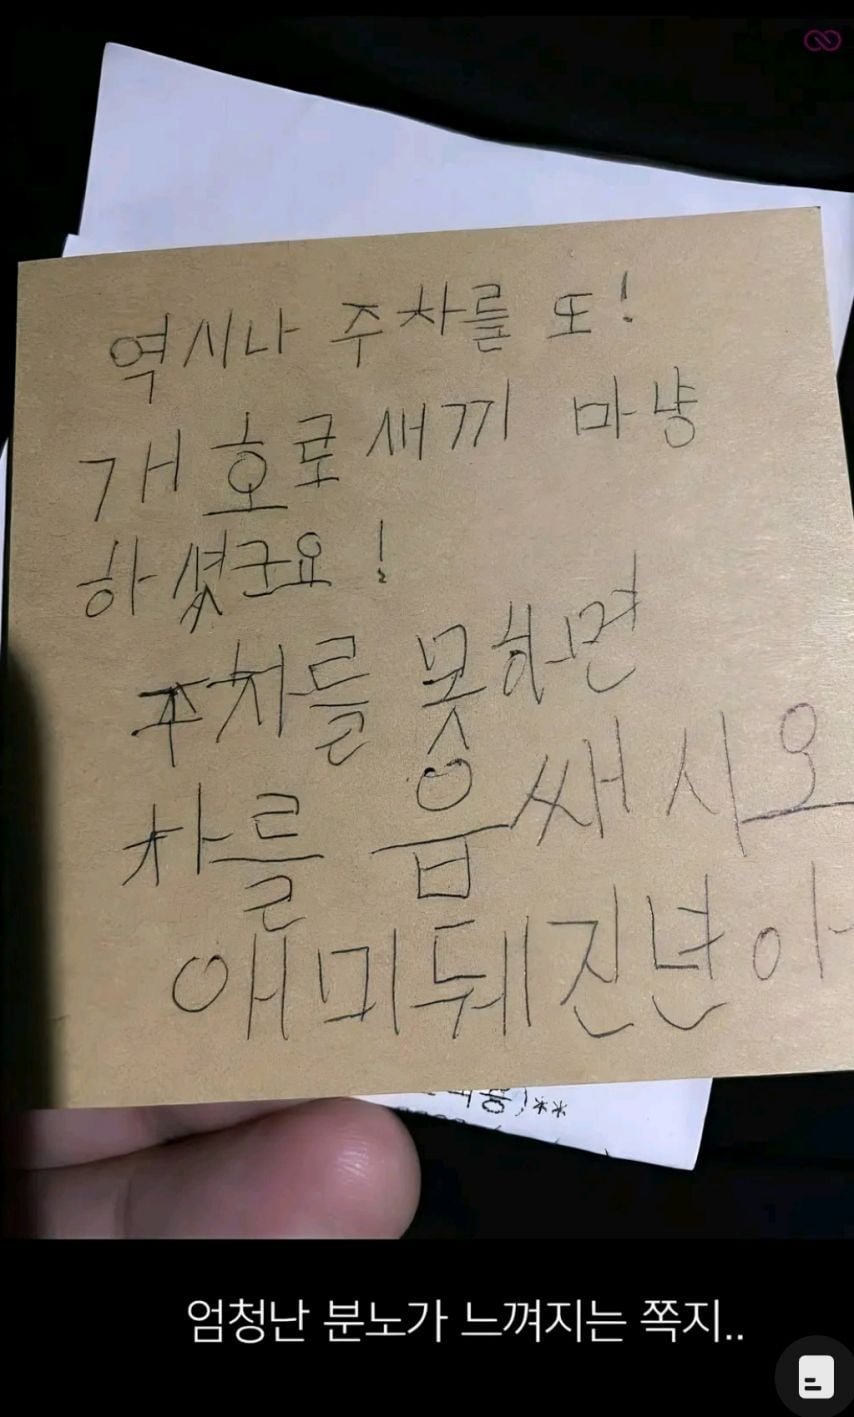 역시나 주차를 또!
개호로새끼 마냥
하셨군요!
주차를 못하면
차를 음쌔시오
애미뒈진년아
엄청난 분노가 느껴지는 쪽지..